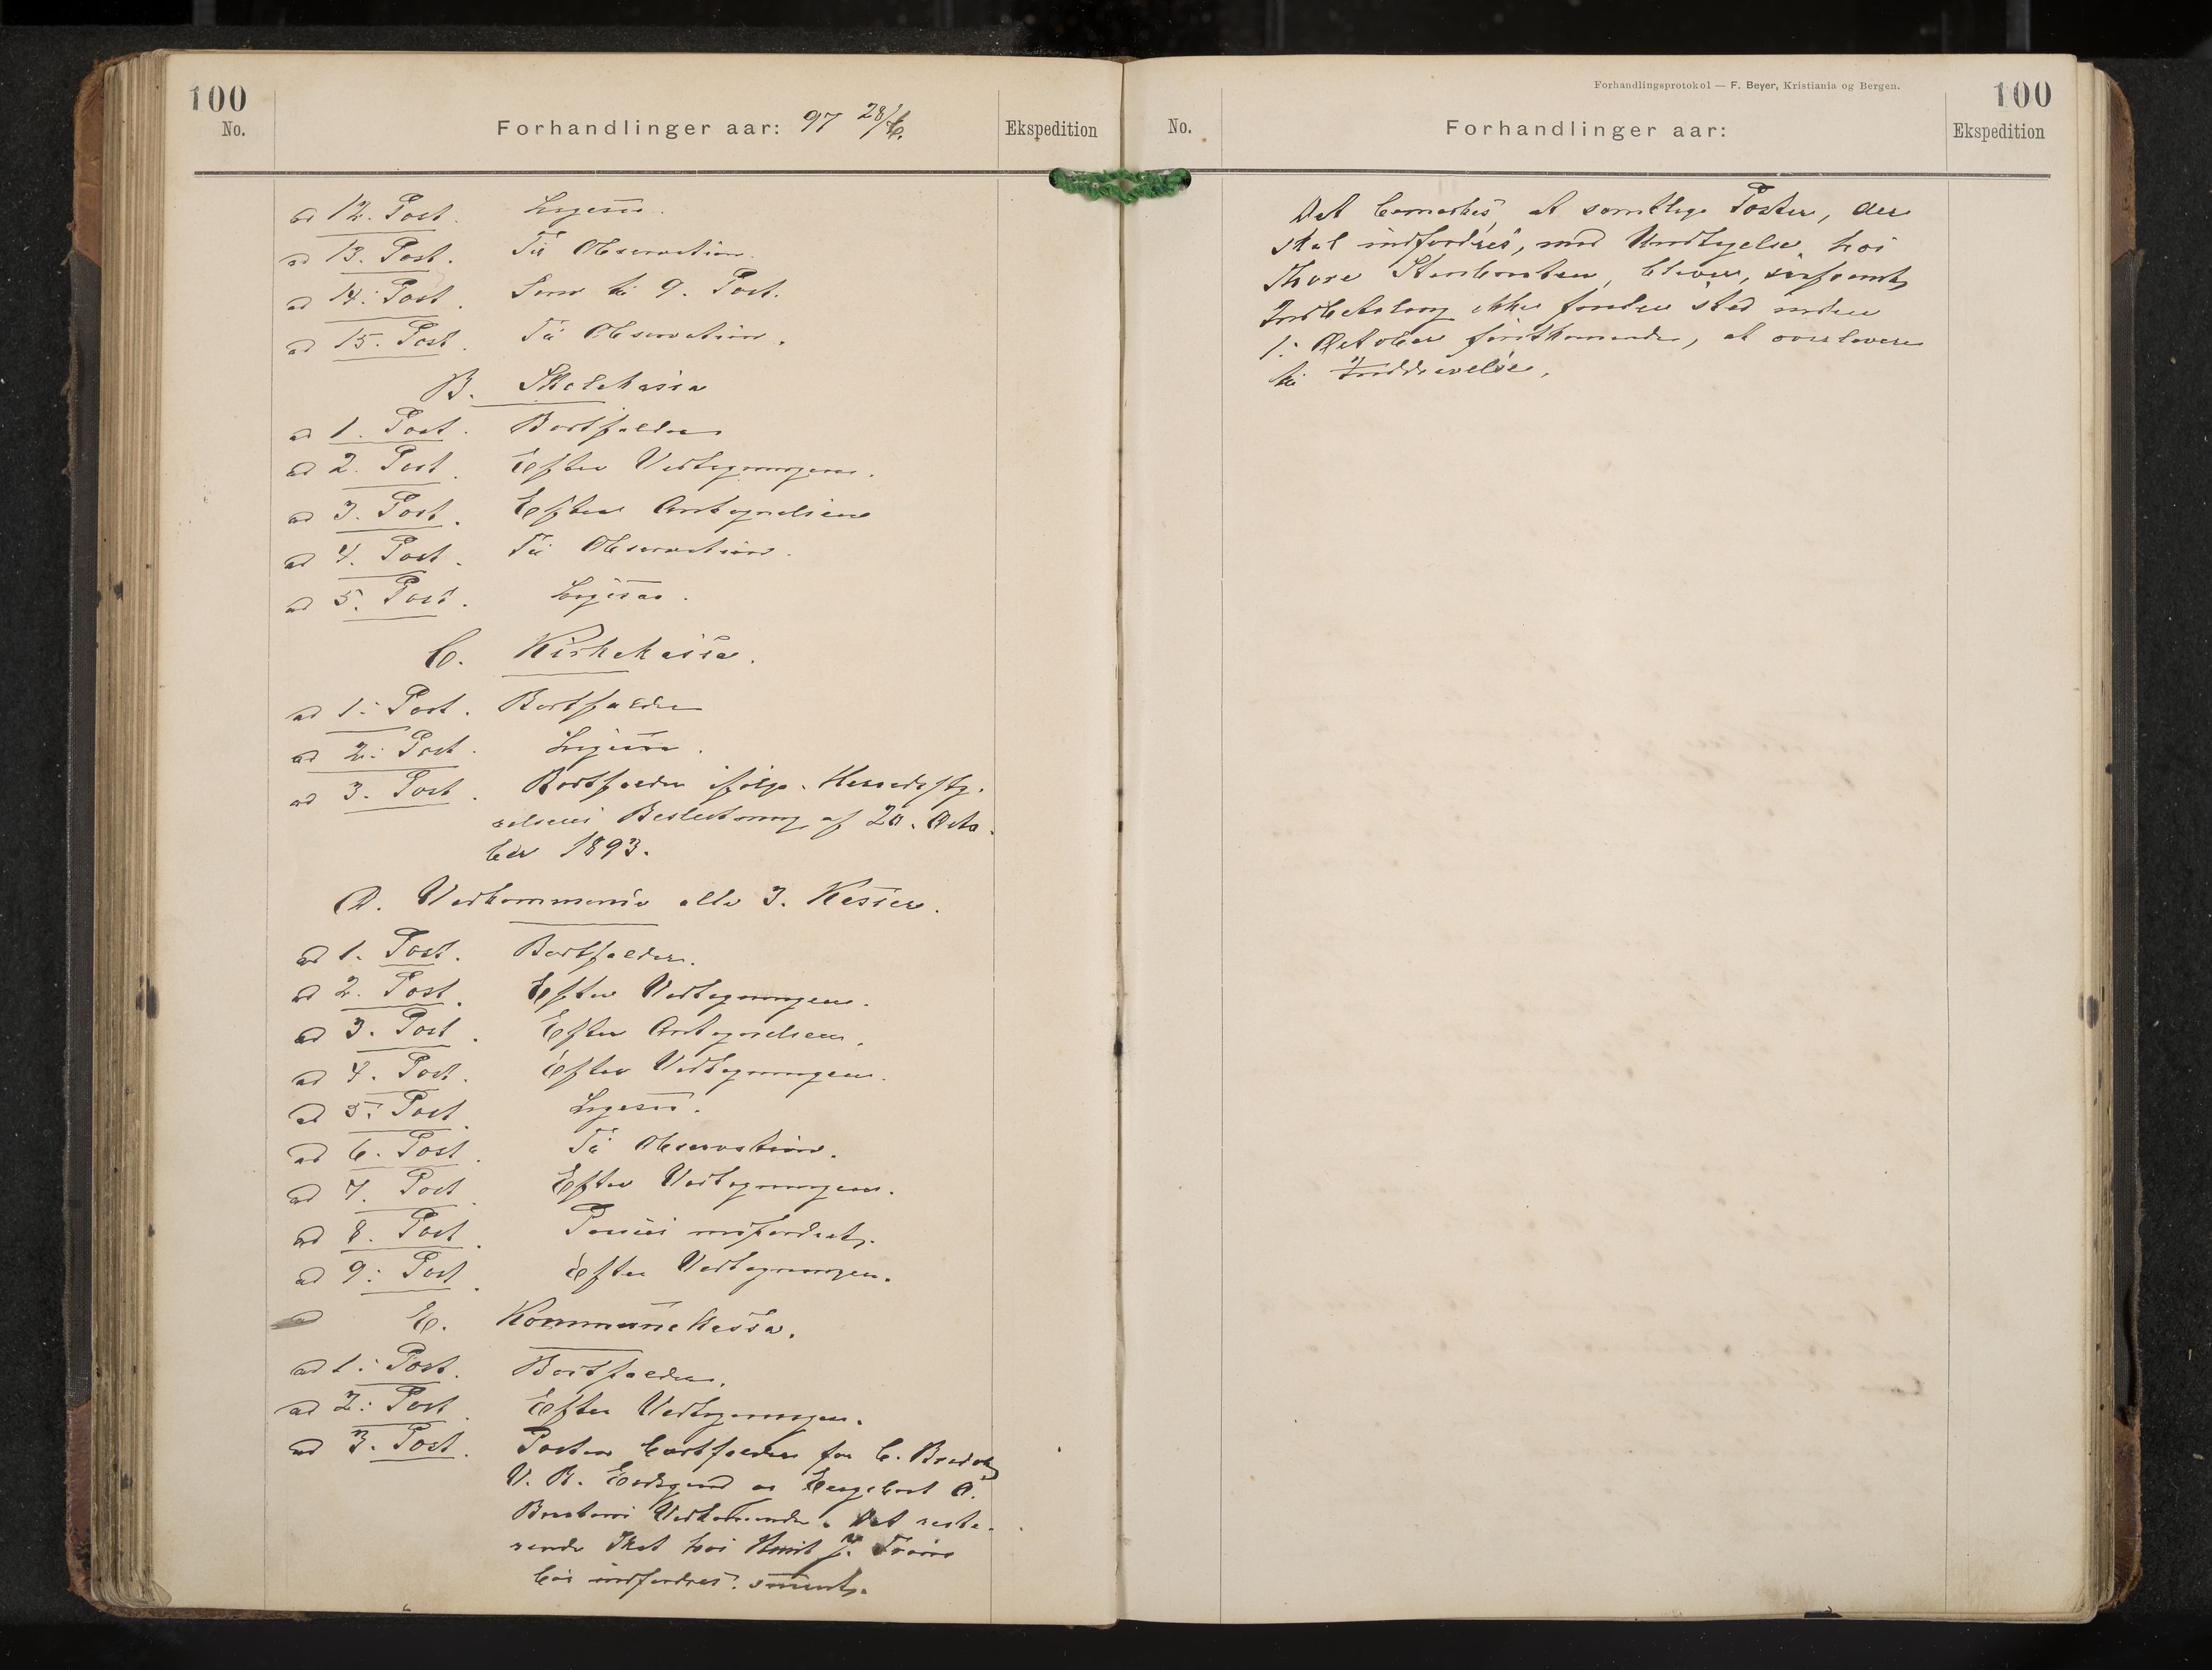 100
No.
Forhandlinger aar: 97 28/6.
Ekspedition
ad 12. Post. Ligesaa.
ad 13. Post. Til Observation.
ad 14. Post. Som til 9. Post.
ad 15. Post. Til Observation.
B. Skolekassa
ad 1. Post. Bortfalder
ad 2. Post. Efter Vedtegningen.
ad 3. Post. Efter Antegnelsen
ad 4. Post. Til Observation.
ad 5. Post. Ligesaa.
C. Kirkekassa.
ad 1. Post. Bortfalder
ad 2. Post. Ligesaa.
ad 3. Post. Bortfalder ifølge Herredsty-
relsens Beslutning af 20. Octo-
ber 1893.
D. Vedkommende alle 3. Kasser.
ad 1. Post. Bortfalder.
ad 2. Post. Efter Vedtegningen.
ad 3. Post. Efter Antegnelsen.
ad 4. Post. Efter Vedtegningen.
ad 5. Post. Ligesaa.
ad 6. Post. Til Observation.
ad 7. Post. Efter Vedtegningen.
ad 8. Post.
ad 9. Post. Efter Vedtegningen.
ad E. Kommunekassa.
ad 1. Post. Bortfalder.
ad 2. Post. Efter Vedtegningen.
ad 3. Post. Posten bortfalder for C.
V. B. og Engebret A.
Vedkommende. Det reste-
rende Skat hos
bør indfordres snarest.
Forhandlingsprotokol — F. Beyer, Kristiania og Bergen.
100
No.
Forhandlinger aar:
Ekspedition
Det bemærkes at samtlige Poster, der
skal indfordres, med Undtagelse hos
Thore bliver, saafremt
Indbetaling ikke finder sted inden
1. October førstkommende, at overlevere
til Inddrivelse.